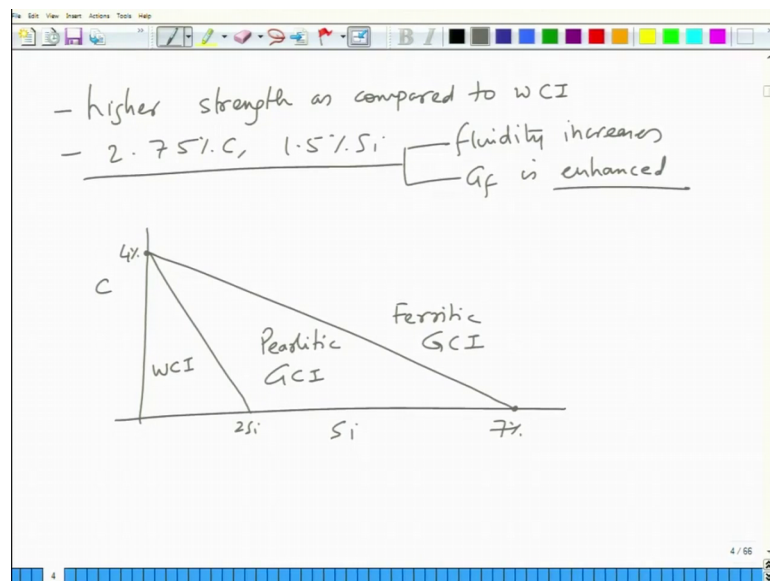 File Edit View Insert Actions Tools Help
B I
- higher strength as compared to WCI
- 2.75%.C, 1.5%.Si
fluidity increases
Gf is enhanced
4%.
C
WCI
Pearlitic
GCI
Ferritic
GCI
2Si
Si
7%.
4 / 66
4